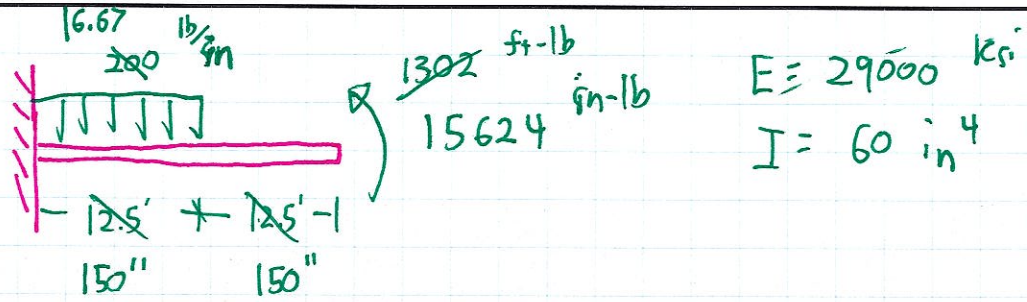 16.67 lb/in
200
1302 ft-lb
15624 in-lb
E = 29000 ksi
I = 60 in⁴
12.5' 12.5'
150" 150"